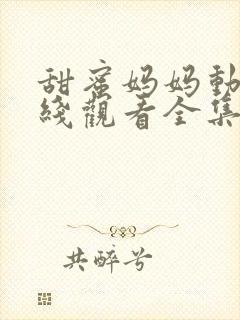 甜蜜妈妈動
綫觀看全集
共醉兮